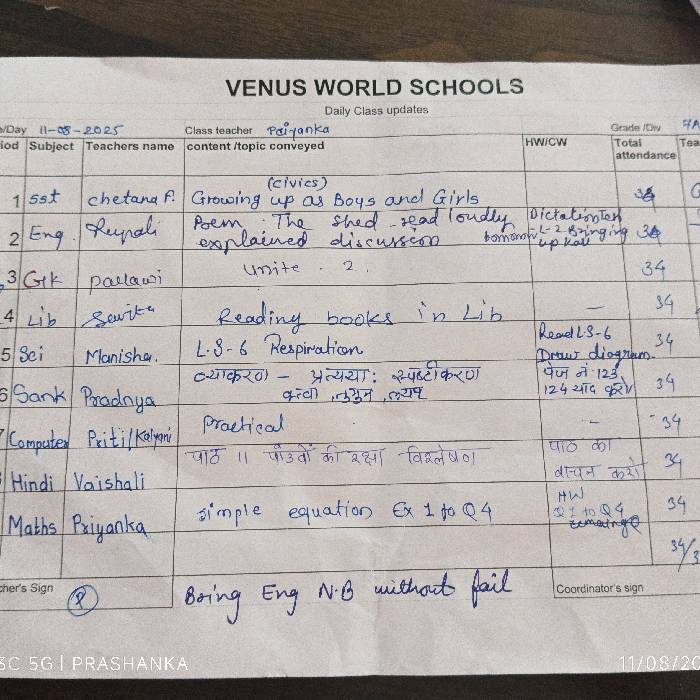 VENUS WORLD SCHOOLS
Daily Class updates
/Day 11-08-2025 Class teacher Paiyanka Grade /Div 7A
iod Subject Teachers name content /topic conveyed HW/CW Total attendance Tea
1 sst chetana P. (civics) Growing up as Boys and Girls 34
2 Eng. Rupali Poem - The shed - read loudly explained discussion Dictation Ten tomorrow L-2 Bringing up Kari 34
3 GK pallawi Unite - 2. 34
4 Lib Savita Reading books in Lib — 34
5 Sci Manisha. L-S-6 Respiration Read L-S-6 Draw diagram 34
6 Sank Pradnya व्याकरण - प्रत्यया: स्पष्टीकरण पेज नं. 123, 124 याद करो 34
Computer Priti/Kalyani Practical - 34
Hindi Vaishali पाठ 11 की रक्षा विश्लेषण पाठ का वाचन करो 34
Maths Priyanka simple equation Ex 1 to Q4 HW Q1 to Q4 34
34/3
her's Sign P Bring Eng N.B without fail Coordinator's sign
5C 5G | PRASHANKA 11/08/20